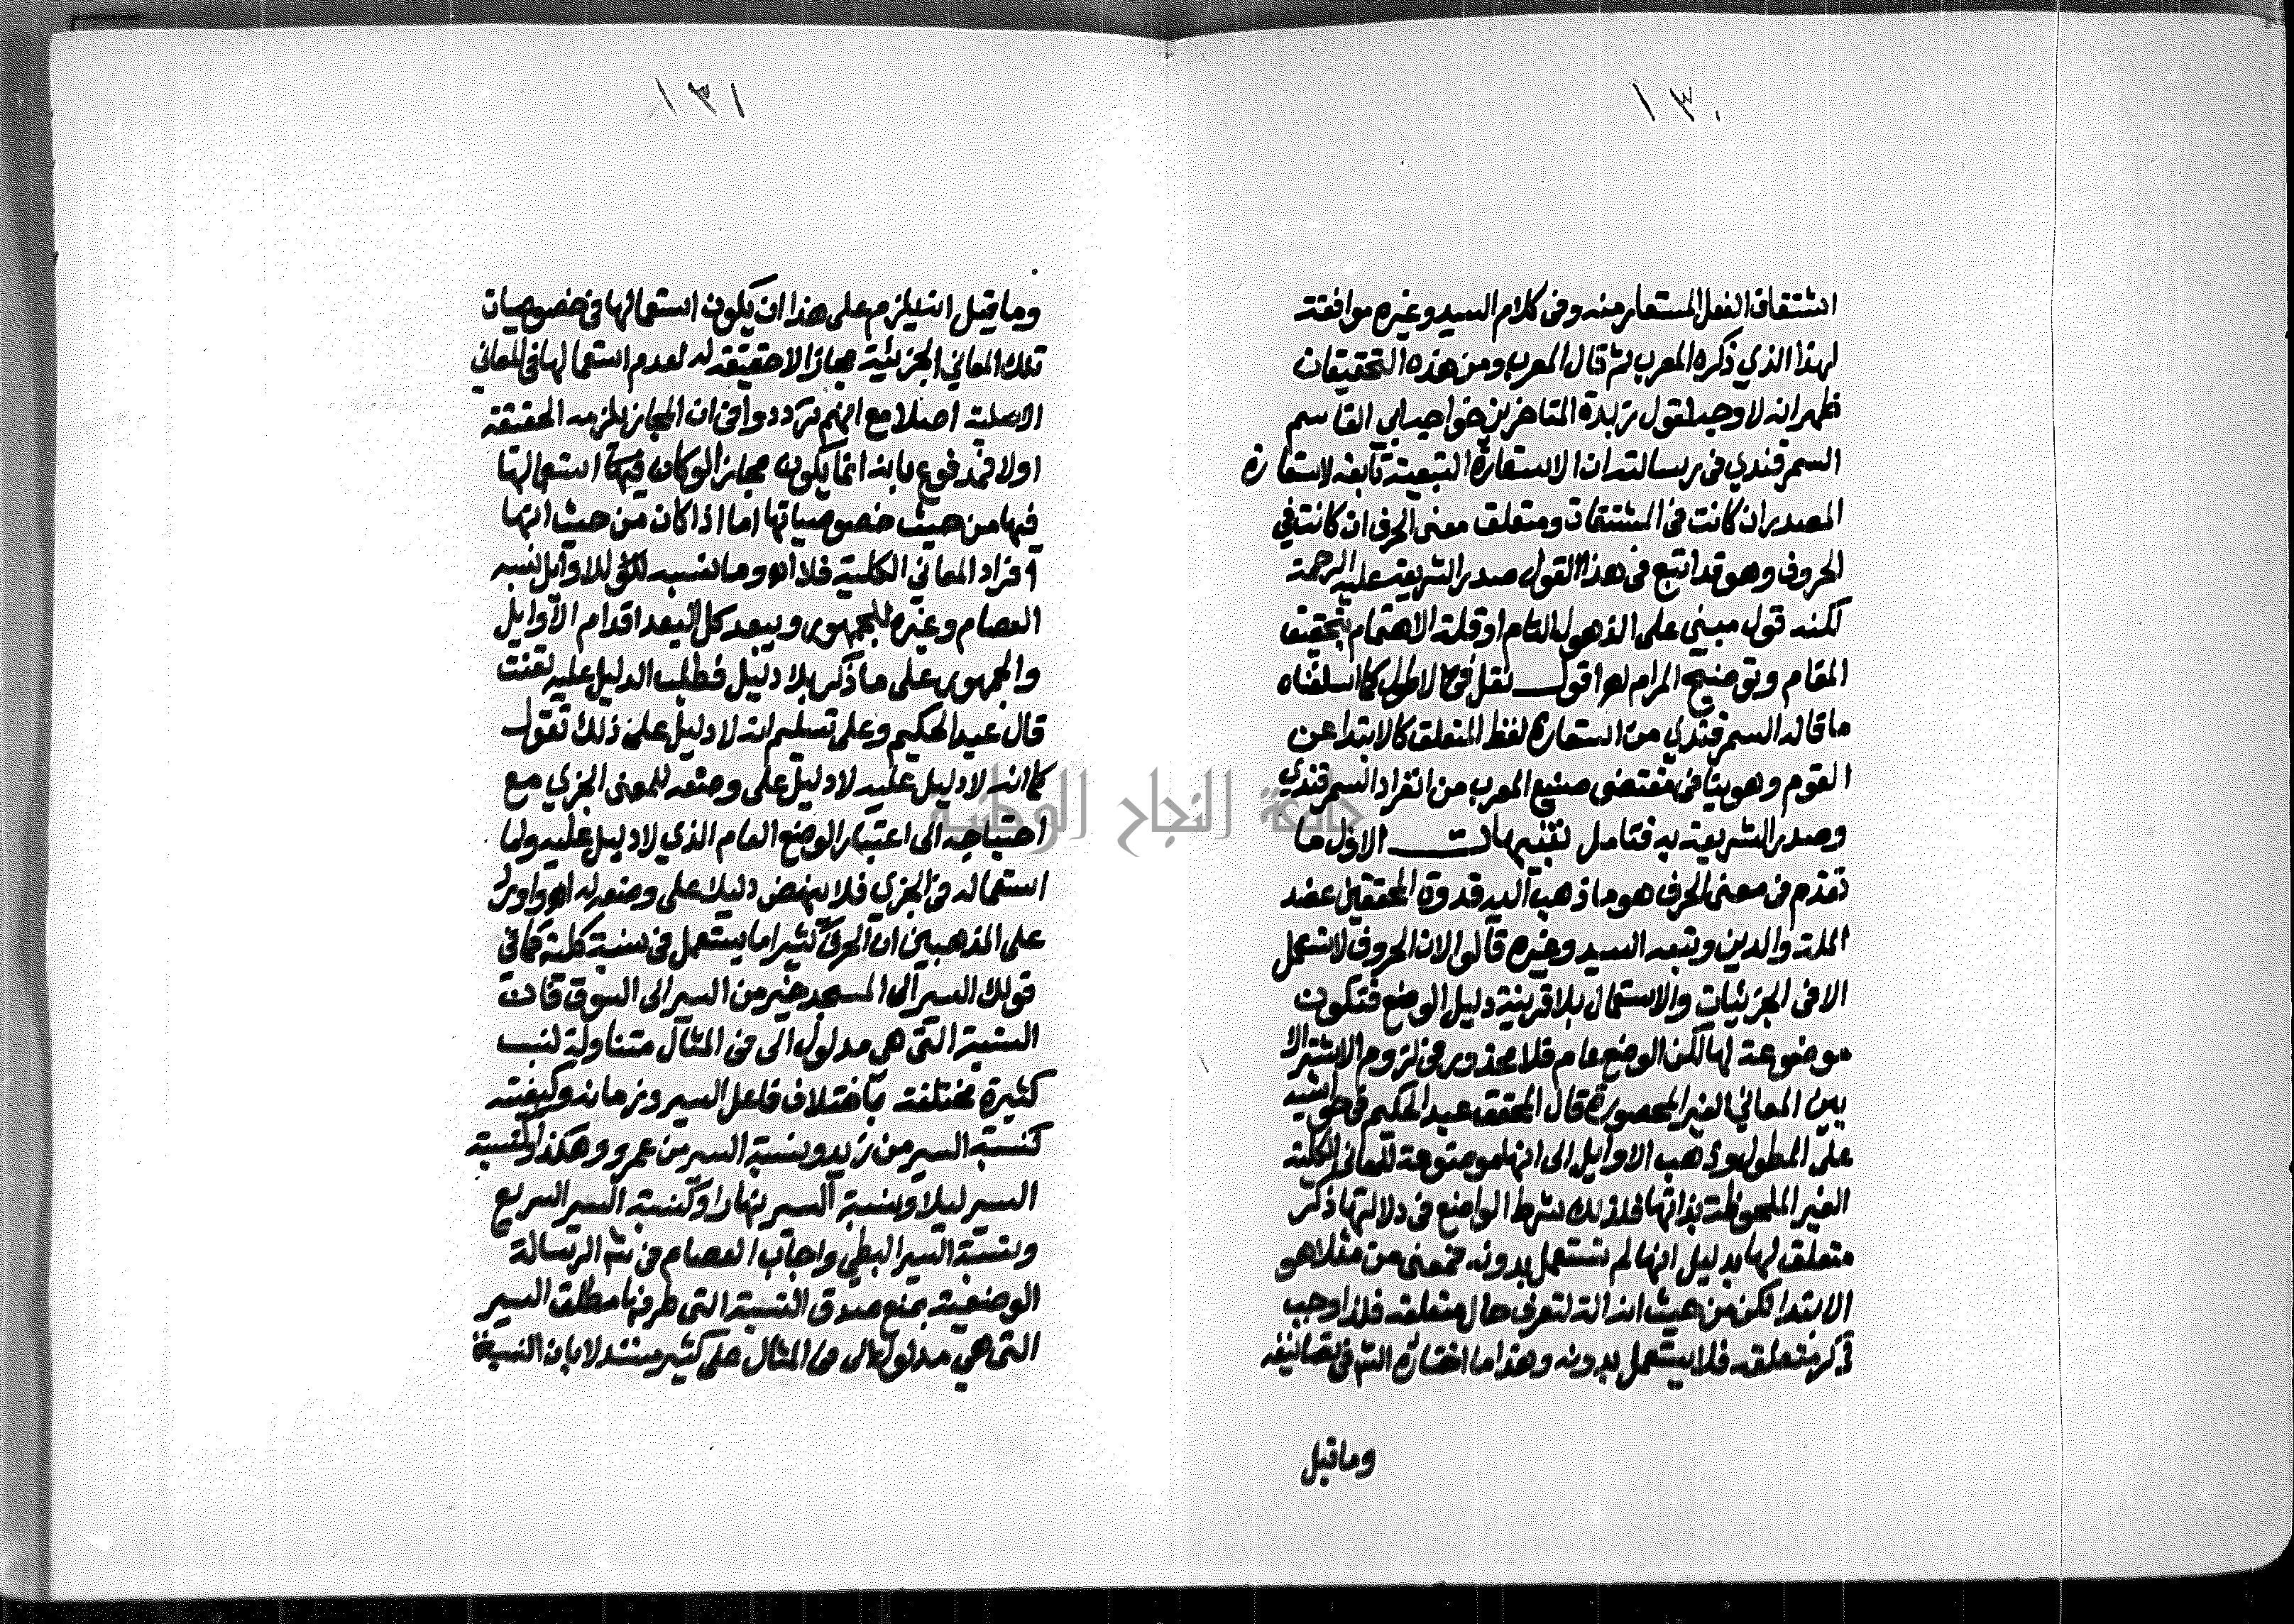 ١٣٠
اشتقاق الفعل المستعار منه وفى كلام السيد وغيره موافقته
لهذا الذي ذكره المعرب ثم قال المعرب ومن هذه التحقيقات
ظهر انه لا وجه لقول زبدة المتاخرين خواجه ابي القاسم
السمرقندي فى رسالته ان الاستعارة التبعية تابعة لاستعارة
المصدر ان كانت فى المشتقات ومتعلق معنى الحرف ان كانت في
الحروف وهو قد اتبع فى هذا القول صدر الشريعة عليه الرحمة
لكنه قول مبني على الذهول التام او قلة الاهتمام بتحقيق
المقام وتوضيح المرام اهـ اقول نقل فى الاطول كما اسلفناه
ما قاله السمرقندي من استعارة لفظ المتعلق كالابتدا عن
القوم وهو ينافى مقتضى صنيع المعرب من انفراد السمرقندي
وصدر الشريعة به فتامل تنبيهات الاول ما
تقدم فى معنى الحرف هو ما ذهب اليه قدوة المحققين عضد
الملة والدين وتبعه السيد وغيره قالوا لان الحروف لا تستعمل
الا فى الجزئيات والاستعمال بلا قرينة دليل الوضع فتكون
موضوعة لها لكن الوضع عام فلا محذور فى لزوم الاشتراك
بين المعاني الغير المحصورة قال المحقق عبد الحكيم فى حواشيه
على المطول وذهب الاوايل الى انها موضوعة للمعاني الكلية
الغير الملحوظة بذاتها فلذلك شرط الواضع فى دلالتها ذكر
متعلق لها بدليل انها لم تستعمل بدونه فمعنى من مثلا هو
الابتدا لكن من حيث انه الة لتعرف حال متعلقه فلذا وجب
ذكر متعلقه فلا يستعمل بدونه وهذا ما اختاره الش فى تصانيفه
وما قيل
١٣١
وما قيل انه يلزم على هذا ان يكون استعمالها فى خصوصيات
تلك المعاني الجزئية مجازا لا حقيقة له لعدم استعمالها فى المعاني
الاصلية اصلا مع انهم ترددوا فى ان المجاز يلزمه الحقيقة
اولا فمدفوع بانه انما يكون مجازا لو كان استعمالها
فيها من حيث خصوصياتها اما اذا كان من حيث انها
افراد المعاني الكلية فلا اهـ وما نسبه للاوايل نسبه
العصام وغيره للجمهور ويبعد كل البعد اقدام الاوايل
والجمهور على ما ذكر بلا دليل فطلب الدليل عليه تعنت
قال عبد الحكيم وعلى تسليم انه لا دليل على ذلك نقول
كما انه لا دليل عليه لا دليل على وضعه للمعنى الجزي مع
احتياجه الى اعتبار الوضع العام الذي لا دليل عليه واما
استعماله فى الجزي فلا ينهض دليلا على وضعه له اهـ واورد
على المذهبين ان الحرف كثيرا ما يستعمل فى نسبة كلية كما فى
قولك السير الى المسجد خير من السير الى السوق فان
النسبة التى هى مدلول الى فى المثال متناولة لنسب
كثيرة مختلفة باختلاف فاعل السير وزمانه وكيفيته
كنسبة السير من زيد ونسبة السير من عمرو وهكذا وكنسبة
السير ليلا ونسبة السير نهارا وكنسبة السير السريع
ونسبة السير البطي واجاب العصام فى ش الرسالة
الوضعية بمنع صدق النسبة التى طرفها مطلق السير
التى هى مدلول الى فى المثال على كثير مستندلا بان النسبة
جامعة النجاح الوطنية